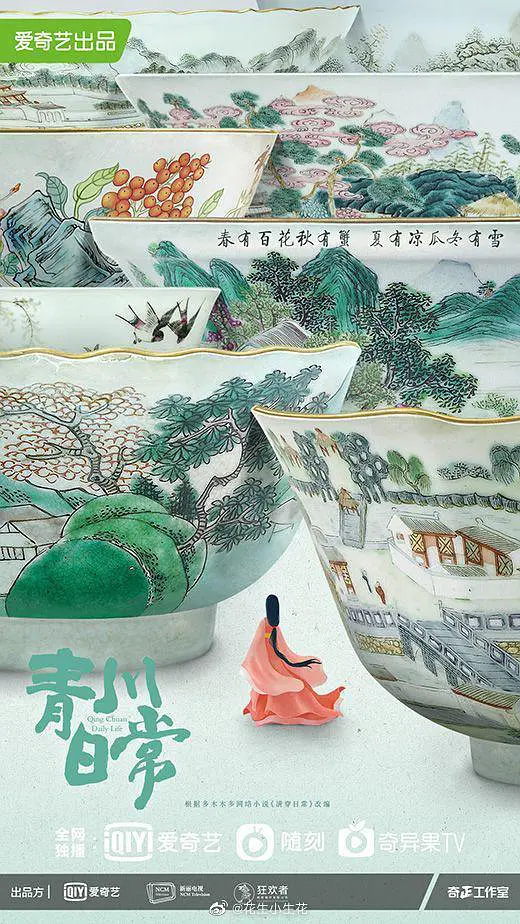 爱奇艺出品
春有百花秋有蟹 夏有凉瓜冬有雪
青川日常
Qing Chuan
Daily Life
根据多木木多网络小说《清穿日常》改编
全网独播：
iQIYI 爱奇艺
随刻
奇异果TV
出品方 | iQIYI 爱奇艺
NCM 新丽电视
NCM Television
狂欢者
奇正工作室
@花生小生花